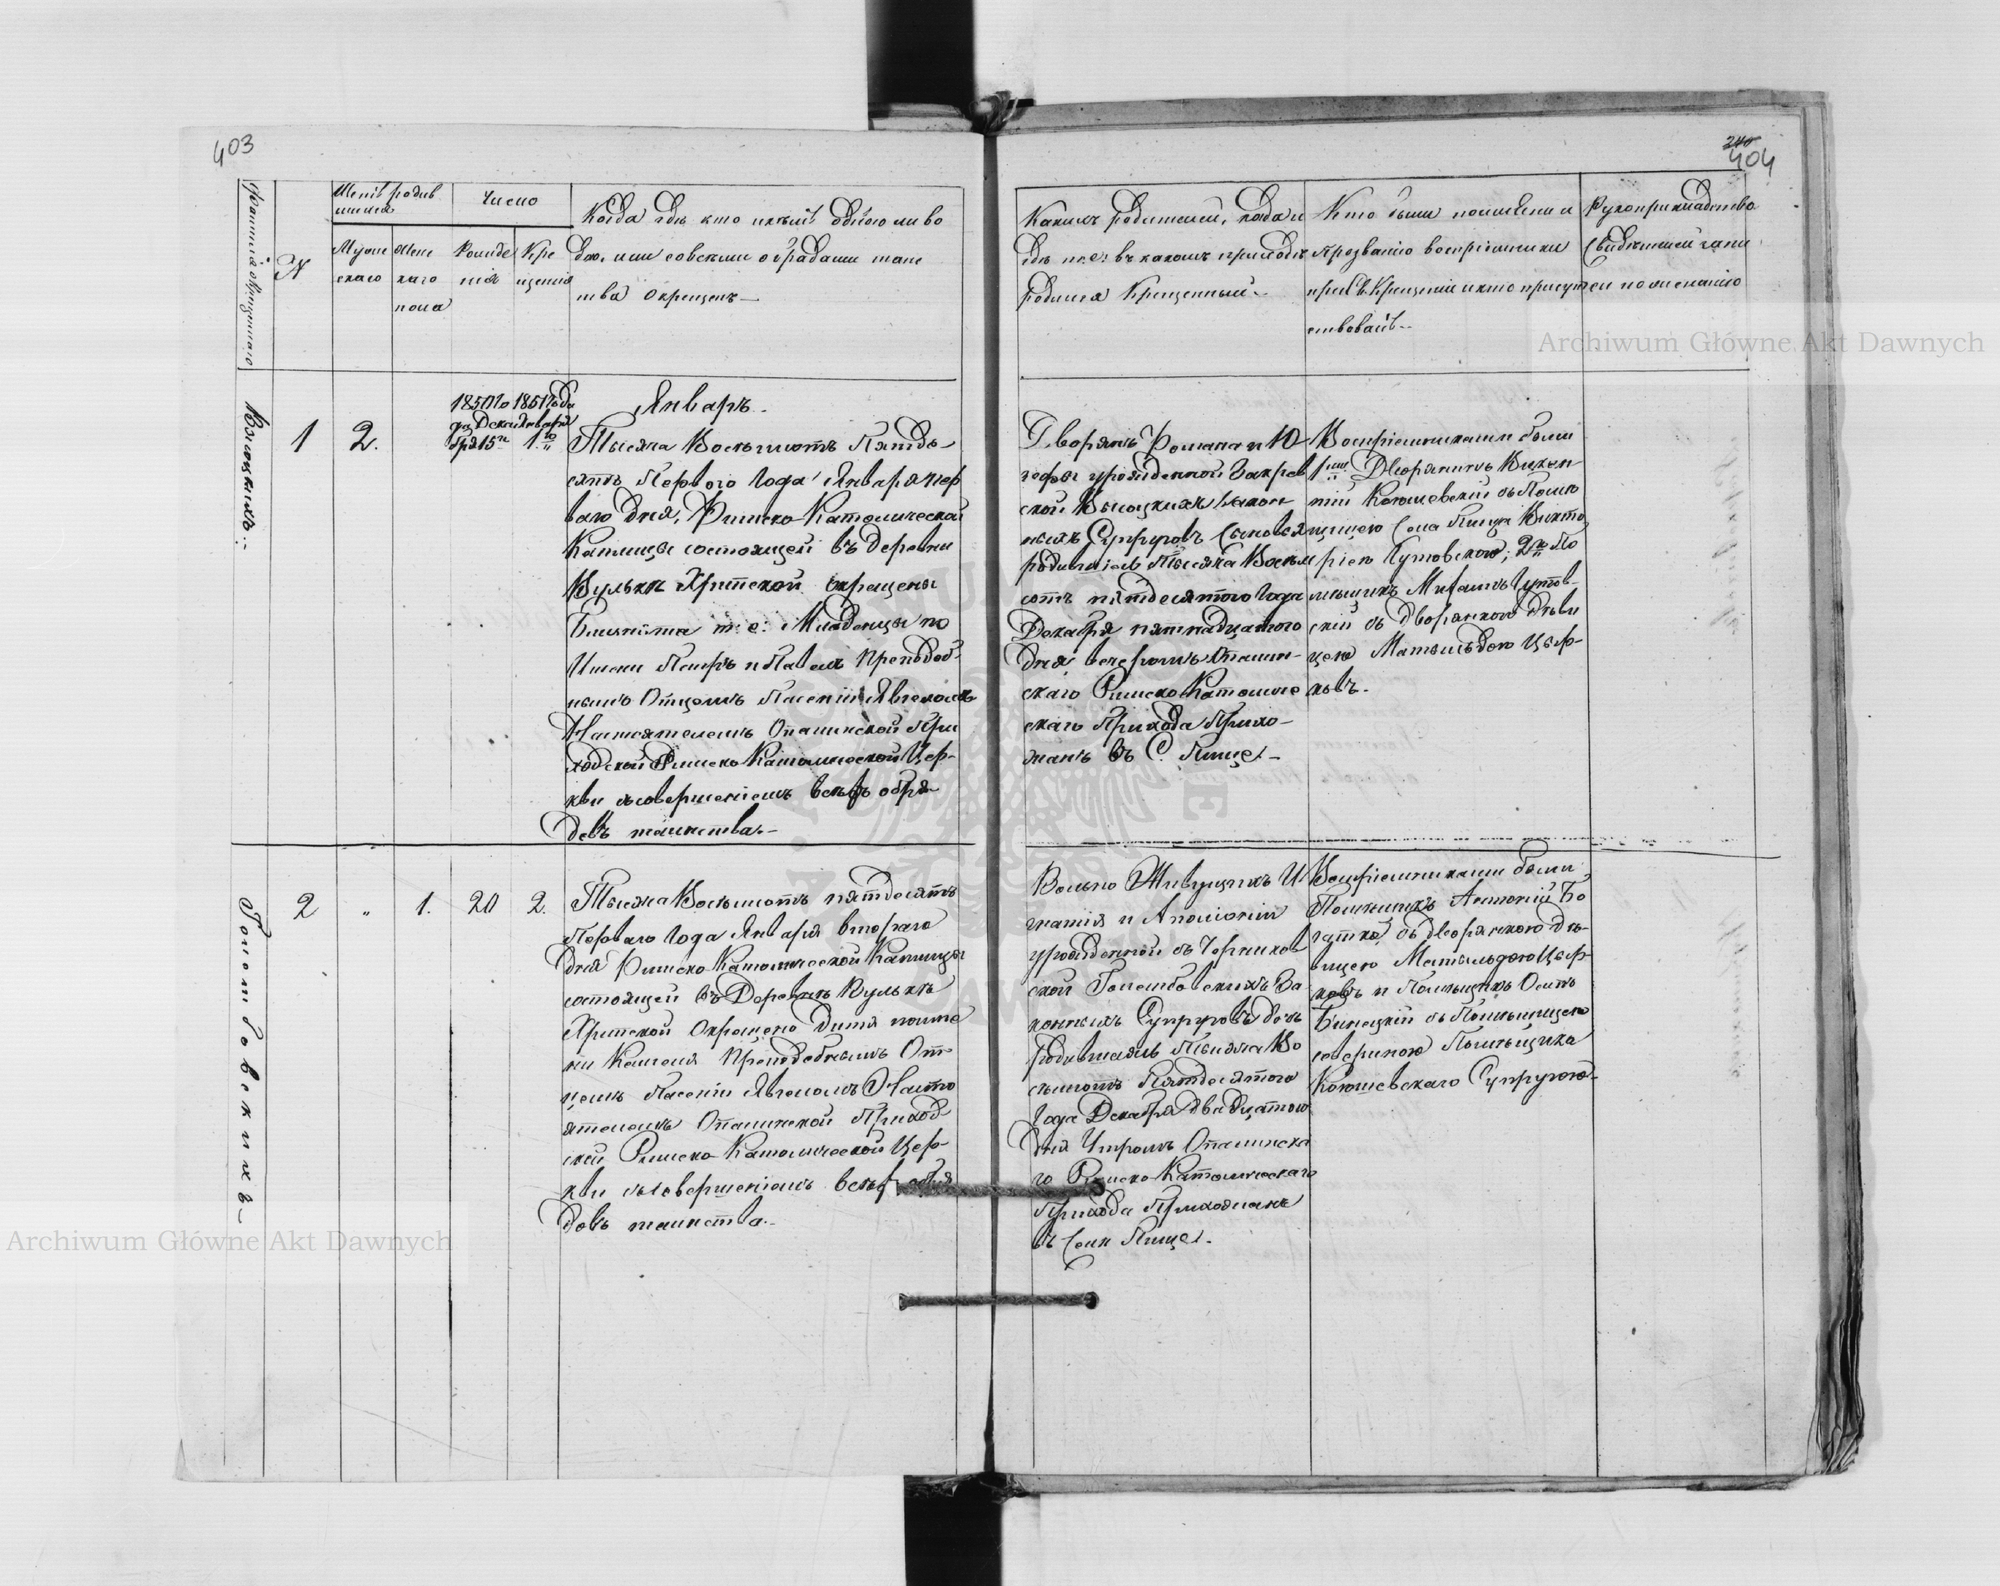 403
240
404
Фамилія окрещеннаго
N
Число родив
шихся
Муже
скаго
Жен
скаго
пола
Число
Рожде
нія
Кре
щенія
Когда гдѣ кто именно одною ли во
дою, или со всеми обрядами таин
ства окрещенъ
Какихъ родителей, когда и
гдѣ т.е: въ какомъ приходѣ
родился Крещенный
Кто были по имени и
прозванію воспріемники
при Св. Крещеніи и кто присут
ствовалъ
Рукоприкладство
свидетелей
по желанію
Высоцкихъ
1
2.
1850 го
да Дека
бря 15
1851 года
Января
1.
Январь.
Тысяча Восемьсотъ Пятьде
сятъ Первого Года Января пер
ваго дня, Римско Католической
Каплицы состоящей въ деревни
Вульки Хрипской окрещены
Близнята т: е: Младенцы по
Имени Петръ и Павелъ Преподоб
нымъ Отцомъ
Настоятелемъ Опалинской При
ходской Римско Католической Цер
кви съ совершеніемъ всехъ обря
довъ таинства.
Дворянъ Романа и Ю
зефы урожденной Закрев
ской Высоцкихъ закон
ныхъ Супруговъ Сыновья
родились Тысяча Восем
сотъ пятдесятого Года
Декабря пятнадцатого
дня вечеромъ Опалин
скаго Римско Католиче
скаго Прихода Прихо
жанъ въ С. Пище
Воспріемниками были
1 Дворянинъ Викен
тій съ Помѣ
щицею Села Пища Викто
ріею Гутовскою; 2 По
мѣщикъ Михаилъ Гутов
скій съ Дворянскою Дѣви
цею Матильдою Цер
ковъ.
Голембовскихъ
2
"
1.
20
2.
Тысяча Восемьсотъ пятдесятъ
Перваго Года Января втораго
дня Римско Католической Каплицы
состоящей въ Деревнѣ Вулькѣ
Хрипской Окрещено дитя по име
ни Камеля Преподобнымъ От
цемъ Насто
ятелемъ Опалинской Приход
ской Римско Католической Цер
кви съ совершеніемъ всехъ обря
довъ таинства.
Вольно Живущихъ И
гнатія и Аполоніи
урожденной съ Чернихов
ской Голембовскихъ За
конныхъ Супруговъ дочь
родившаяся Тысяча Во
семьсотъ Пятдесятого
Года Декабря двадцатого
дня Утромъ Опалинска
го Римско Католическаго
Прихода Прихожанъ
въ Селѣ Пище.
Воспріемниками были
Помѣщикъ Антоній Бо
гатко съ дворянскою дѣ
вицею Матильдою Цер
ковъ и Помѣщикъ Осипъ
съ Помѣщицею
Севериною Помѣщика
Супругою
Archiwum Główne Akt Dawnych
Archiwum Główne Akt Dawnych